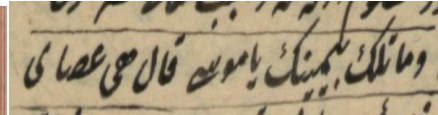 وما تلك بيمينك يا موسى قال هي عصاى